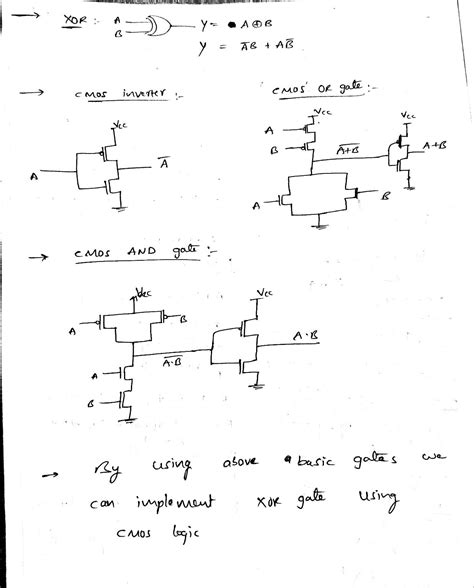 → XOR :- A B Y = A⊕B
Y = A̅B + AB̅
→ CMOS inverter :-
Vcc
A
A̅
CMOS OR gate :-
Vcc
Vcc
A
B
A̅+̅B̅
A+B
A
B
→ CMOS AND gate :-
Vcc
Vcc
A
B
A·B
A̅·̅B̅
A
B
→ By using above basic gates we
can implement XOR gate using
CMOS logic